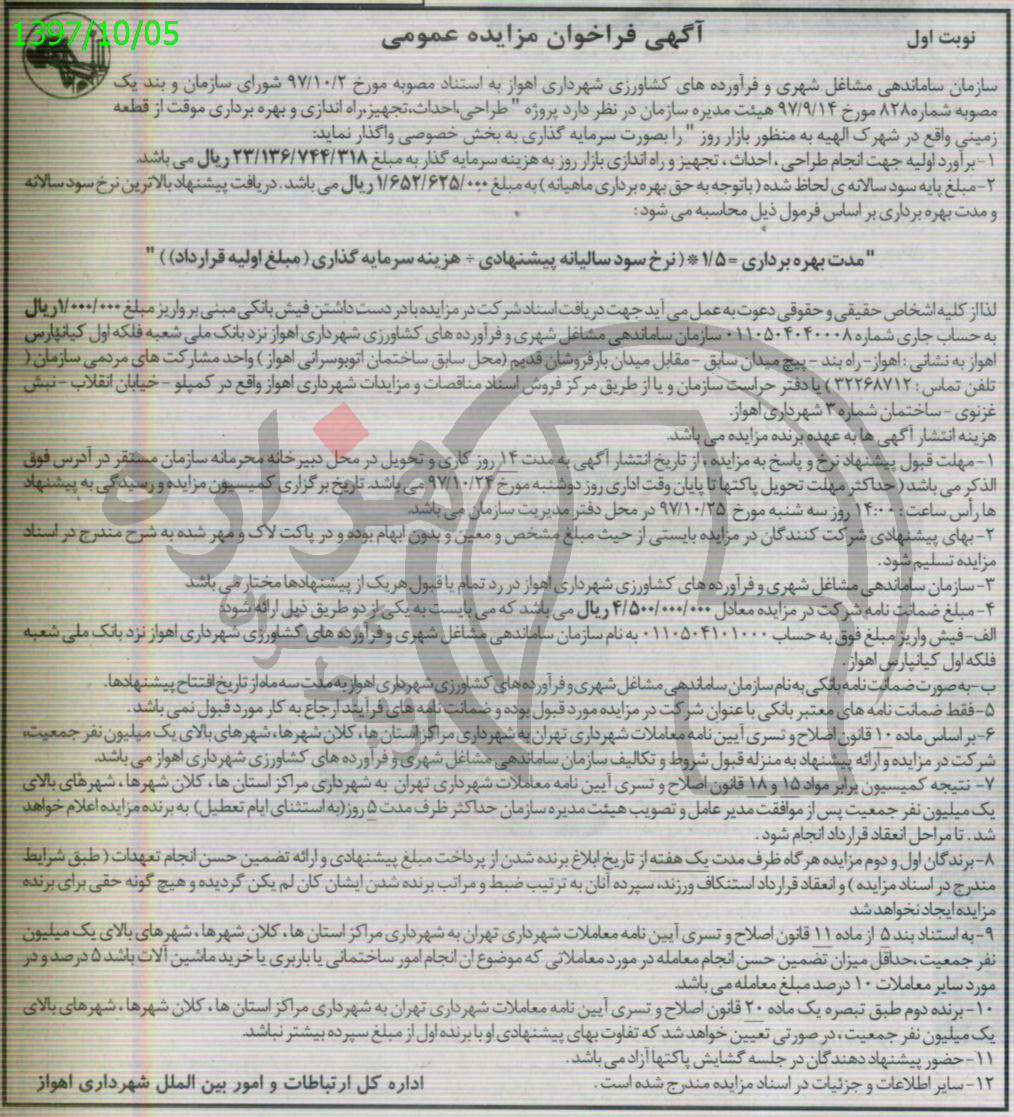 1397/10/05
نوبت اول
آگهی فراخوان مزایده عمومی
سازمان ساماندهی مشاغل شهری و فرآورده های کشاورزی شهرداری اهواز به استناد مصوبه مورخ ۹۷/۱۰/۲ شورای سازمان و بند یک
مصوبه شماره۸۲۸ مورخ ۹۷/۹/۱۴ هیئت مدیره سازمان در نظر دارد پروژه " طراحی،احداث،تجهیز،راه اندازی و بهره برداری موقت از قطعه
زمینی واقع در شهرک الهیه به منظور بازار روز " را بصورت سرمایه گذاری به بخش خصوصی واگذار نماید:
۱-برآورد اولیه جهت انجام طراحی ، احداث ، تجهیز و راه اندازی بازار روز به هزینه سرمایه گذار به مبلغ ۲۳/۱۳۶/۷۴۴/۳۱۸ ریال می باشد.
۲-مبلغ پایه سود سالانه ی لحاظ شده ( باتوجه به حق بهره برداری ماهیانه ) به مبلغ ۱/۶۵۲/۶۲۵/۰۰۰ ریال می باشد . دریافت پیشنهاد بالاترین نرخ سود سالانه
و مدت بهره برداری بر اساس فرمول ذیل محاسبه می شود :
"مدت بهره برداری = ۱/۵ * ( نرخ سود سالیانه پیشنهادی ÷ هزینه سرمایه گذاری ( مبلغ اولیه قرارداد) ) "
لذا از کلیه اشخاص حقیقی و حقوقی دعوت به عمل می آید جهت دریافت اسناد شرکت در مزایده با در دست داشتن فیش بانکی مبنی بر واریز مبلغ ۱/۰۰۰/۰۰۰ریال
به حساب جاری شماره ۰۱۱۰۵۰۴۰۴۰۰۰۸ سازمان ساماندهی مشاغل شهری و فرآورده های کشاورزی شهرداری اهواز نزد بانک ملی شعبه فلکه اول کیانپارس
اهواز به نشانی : اهواز- راه بند - پیچ میدان سابق - مقابل میدان بارفروشان قدیم (محل سابق ساختمان اتوبوسرانی اهواز ) واحد مشارکت های مردمی سازمان (
تلفن تماس : ۳۲۲۶۸۷۱۲ ) یا دفتر حراست سازمان و یا از طریق مرکز فروش اسناد مناقصات و مزایدات شهرداری اهواز واقع در کمپلو - خیابان انقلاب - نبش
غزنوی - ساختمان شماره ۳ شهرداری اهواز.
هزینه انتشار آگهی ها به عهده برنده مزایده می باشد.
۱-مهلت قبول پیشنهاد نرخ و پاسخ به مزایده ، از تاریخ انتشار آگهی به مدت ۱۴ روز کاری و تحویل در محل دبیرخانه محرمانه سازمان مستقر در آدرس فوق
الذکر می باشد( حداکثر مهلت تحویل پاکتها تا پایان وقت اداری روز دوشنبه مورخ ۹۷/۱۰/۲۴ می باشد. تاریخ برگزاری کمیسیون مزایده و رسیدگی به پیشنهاد
ها رأس ساعت : ۱۴:۰۰ روز سه شنبه مورخ ۹۷/۱۰/۲۵ در محل دفتر مدیریت سازمان می باشد.
۲-بهای پیشنهادی شرکت کنندگان در مزایده بایستی از حیث مبلغ مشخص و معین و بدون ابهام بوده و در پاکت لاک و مهر شده به شرح مندرج در اسناد
مزایده تسلیم شود.
۳-سازمان ساماندهی مشاغل شهری و فرآورده های کشاورزی شهرداری اهواز در رد تمام یا قبول هریک از پیشنهادها مختار می باشد
۴-مبلغ ضمانت نامه شرکت در مزایده معادل ۴/۵۰۰/۰۰۰/۰۰۰ ریال می باشد که می بایست به یکی از دو طریق ذیل ارائه شود:
الف-فیش واریز مبلغ فوق به حساب ۰۱۱۰۵۰۴۱۰۱۰۰۰ به نام سازمان ساماندهی مشاغل شهری و فرآورده های کشاورزی شهرداری اهواز نزد بانک ملی شعبه
فلکه اول کیانپارس اهواز.
ب-به صورت ضمانت نامه بانکی به نام سازمان ساماندهی مشاغل شهری و فرآورده های کشاورزی شهرداری اهواز به مدت سه ماه از تاریخ افتتاح پیشنهادها.
۵-فقط ضمانت نامه های معتبر بانکی با عنوان شرکت در مزایده مورد قبول بوده و ضمانت نامه های فرآیند ارجاع به کار مورد قبول نمی باشد .
۶-بر اساس ماده ۱۰ قانون اصلاح و تسری آیین نامه معاملات شهرداری تهران به شهرداری مراکز استان ها ، کلان شهرها ، شهرهای بالای یک میلیون نفر جمعیت،
شرکت در مزایده و ارائه پیشنهاد به منزله قبول شروط و تکالیف سازمان ساماندهی مشاغل شهری و فرآورده های کشاورزی شهرداری اهواز می باشد.
۷- نتیجه کمیسیون برابر مواد ۱۵ و ۱۸ قانون اصلاح و تسری آیین نامه معاملات شهرداری تهران به شهرداری مراکز استان ها ، کلان شهرها ، شهرهای بالای
یک میلیون نفر جمعیت پس از موافقت مدیر عامل و تصویب هیئت مدیره سازمان حداکثر ظرف مدت ۵ روز(به استثنای ایام تعطیل ) به برنده مزایده اعلام خواهد
شد . تا مراحل انعقاد قرارداد انجام شود .
۸-برندگان اول و دوم مزایده هرگاه ظرف مدت یک هفته از تاریخ ابلاغ برنده شدن از پرداخت مبلغ پیشنهادی و ارائه تضمین حسن انجام تعهدات ( طبق شرایط
مندرج در اسناد مزایده ) و انعقاد قرارداد استنکاف ورزند، سپرده آنان به ترتیب ضبط و مراتب برنده شدن ایشان کان لم یکن گردیده و هیچ گونه حقی برای برنده
مزایده ایجاد نخواهد شد
۹-به استناد بند ۵ از ماده ۱۱ قانون اصلاح و تسری آیین نامه معاملات شهرداری تهران به شهرداری مراکز استان ها ، کلان شهرها ، شهرهای بالای یک میلیون
نفر جمعیت ،حداقل میزان تضمین حسن انجام معامله در مورد معاملاتی که موضوع ان انجام امور ساختمانی یا باربری یا خرید ماشین آلات باشد ۵ درصد و در
مورد سایر معاملات ۱۰ درصد مبلغ معامله می باشد.
۱۰-برنده دوم طبق تبصره یک ماده ۲۰ قانون اصلاح و تسری آیین نامه معاملات شهرداری تهران به شهرداری مراکز استان ها ، کلان شهرها ، شهرهای بالای
یک میلیون نفر جمعیت ، در صورتی تعیین خواهد شد که تفاوت بهای پیشنهادی او با برنده اول از مبلغ سپرده بیشتر نباشد.
۱۱-حضور پیشنهاد دهندگان در جلسه گشایش پاکتها آزاد می باشد .
۱۲-سایر اطلاعات و جزئیات در اسناد مزایده مندرج شده است .
اداره کل ارتباطات و امور بین الملل شهرداری اهواز
هزاره